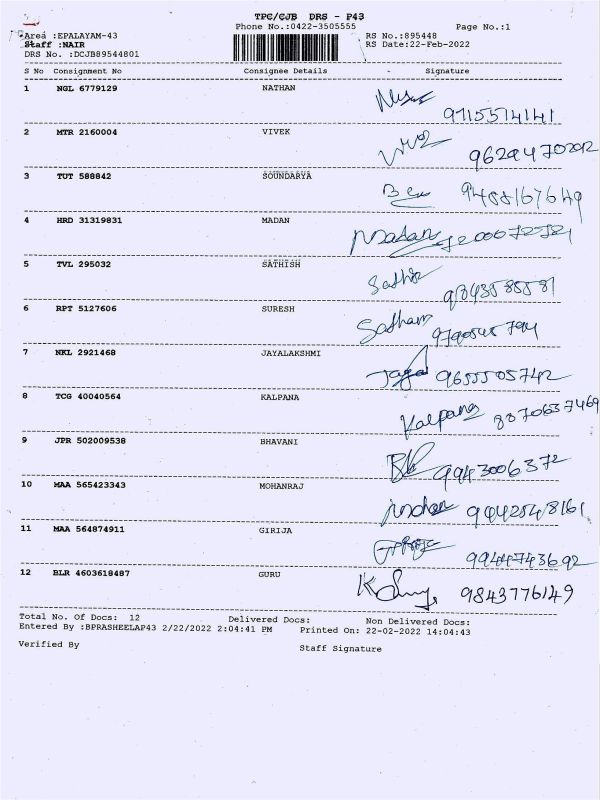 TPC/CJB DRS - P43
Phone No.:0422-3505555 Page No.:1
Area :EPALAYAM-43 RS No.:895448
Staff :NAIR RS Date:22-Feb-2022
DRS No. :DCJB89544801
S No Consignment No Consignee Details - Signature
1 NGL 6779129 NATHAN
9715574141
2 MTR 2160004 VIVEK
3 TUT 588842 SOUNDARYA
9488167649
4 HRD 31319831 MADAN Madan
5 TVL 295032 SATHISH Sathis
6 RPT 5127606 SURESH Sadham
7 NKL 2921468 JAYALAKSHMI
9655505742
8 TCG 40040564 KALPANA Kalpana
8870637469
9 JPR 502009538 BHAVANI
9943006372
10 MAA 565423343 MOHANRAJ
9442548161
11 MAA 564874911 GIRIJA
9944743692
12 BLR 4603618487 GURU
9843776149
Total No. Of Docs: 12 Delivered Docs: Non Delivered Docs:
Entered By :BPRASHEELAP43 2/22/2022 2:04:41 PM Printed On: 22-02-2022 14:04:43
Verified By Staff Signature